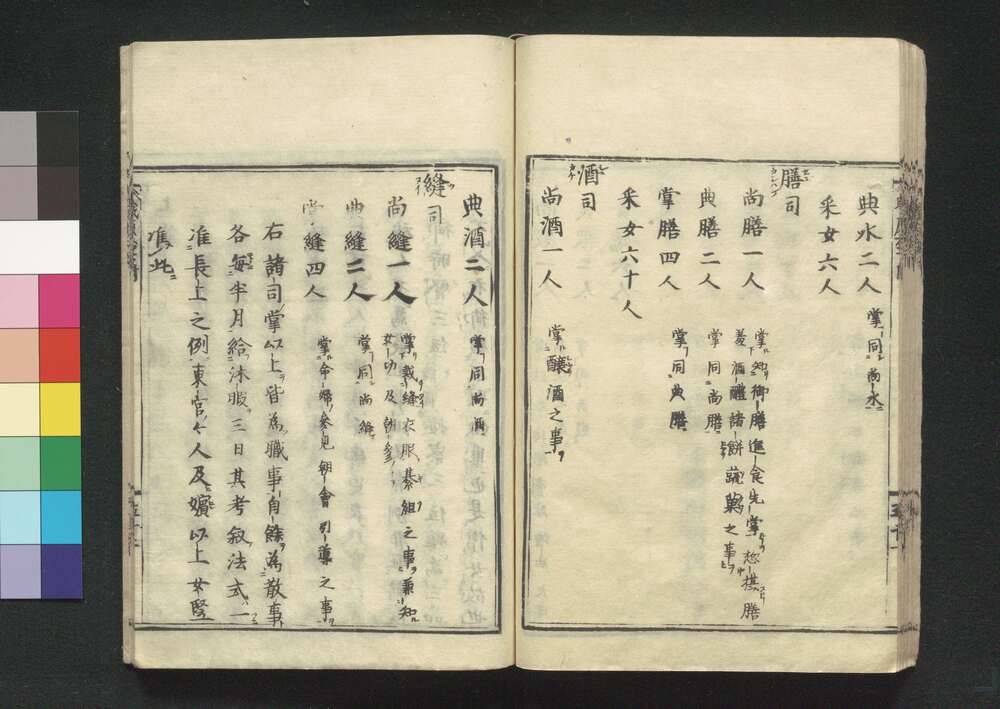 典水二人 掌同尚水
采女六人
膳司
尚膳一人 掌知御膳進食先嘗惣棋膳
羞酒醴諸餅蔬菓之事
典膳二人 掌同尚膳
掌膳四人 掌同典膳
采女六十人
酒司
尚酒一人 掌醸酒之事
典酒二人 掌同尚酒
縫司
尚縫一人 掌裁縫衣服纂組之事兼知
女功及朝参
典縫二人 掌同尚縫
掌縫四人 掌命婦参見朝會引導之事
右諸司掌以上皆為職事自餘為散事
各毎半月給沐暇三日其考叙法式一
准長上之例東宮々人及嬪以上女竪
准此